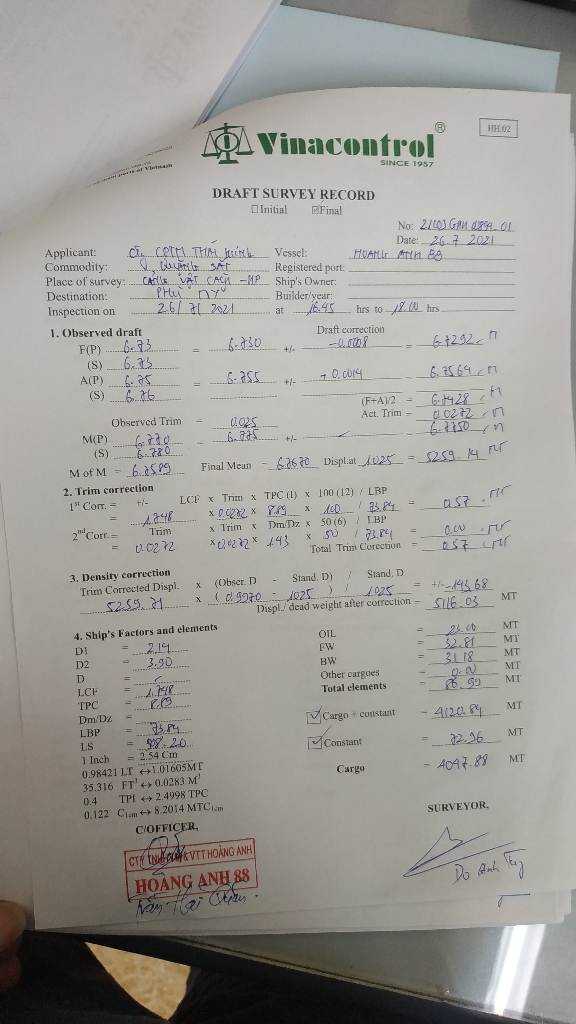 Vinacontrol®
SINCE 1957
HH.02
DRAFT SURVEY RECORD
☐Initial ☑Final
No:
Date: 26.7.2021
Applicant: CTy CPTM THÁI HƯNG Vessel: HOANG ANH 88
Commodity: QUẶNG SẮT Registered port:
Place of survey: CẢNG VẬT CÁCH - HP Ship's Owner:
Destination: PHÚ MỸ Builder/year:
Inspection on 26/7/2021 at 16.45 hrs to 18.00 hrs
1. Observed draft Draft correction
F(P) 6.73 = 6.730 +/- -0.0008 = 6.7292 M
(S) 6.73
A(P) 6.75 = 6.755 +/- +0.0014 6.7564 M
(S) 6.76
(F+A)/2 = 6.7428 M
Observed Trim = 0.025 Act. Trim = 0.0272 M
M(P) 6.770 = 6.775 +/- 6.7750 M
(S) 6.780
M of M = 6.7589 Final Mean = 6.7670 Displ.at 1.025 = 5259.14 MT
2. Trim correction
LCF x Trim x TPC (I) x 100 (12) / LBP
1st Corr. = +/- 1.748 x 0.0272 x 8.89 x 100 / 73.84 = 0.57 MT
Trim x Trim x Dm/Dz x 50 (6) / LBP
2nd Corr. = 0.0272 x 0.0272 x 1.43 x 50 / 73.84 = 0.00 MT
Total Trim Corection = 0.57 MT
3. Density correction
Trim Corrected Displ. x (Obser. D - Stand. D) / Stand. D
5259.71 x ( 0.9970 - 1.025 ) / 1.025 = +/- -143.68
Displ./ dead weight after correction = 5116.03 MT
4. Ship's Factors and elements
D1 = 2.14 OIL = 23.00 MT
D2 = 3.90 FW = 32.81 MT
D = BW = 31.18 MT
LCF = 1.748 Other cargoes = 0.00 MT
TPC = 8.89 Total elements = 86.99 MT
Dm/Dz =
LBP = 73.84 ☑Cargo + constant = 4120.84 MT
LS = 908.20 ☑Constant = 72.96 MT
1 Inch = 2.54 Cm
0.98421 LT ↔1.01605MT Cargo = 4047.88 MT
35.316 FT³ ↔0.0283 M³
0.4 TPI ↔ 2.4998 TPC
0.122 C1cm ↔ 8.2014 MTC1cm
C/OFFICER, SURVEYOR,
CTY TNHH &VTT HOÀNG ANH
HOÀNG ANH 88